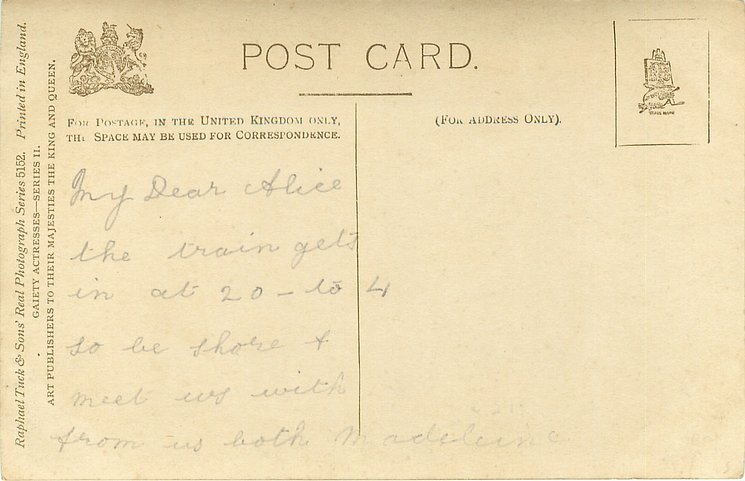 Raphael Tuck & Sons' Real Photograph Series 5152. Printed in England.
GAIETY ACTRESSES—SERIES II.
ART PUBLISHERS TO THEIR MAJESTIES THE KING AND QUEEN.
POST CARD.
FOR POSTAGE, IN THE UNITED KINGDOM ONLY,
THI SPACE MAY BE USED FOR CORRESPONDENCE.
(FOR ADDRESS ONLY).
My Dear Alice
the train gets
in at 20 - to 4
so be shore &
meet us with
from us both Madeleine